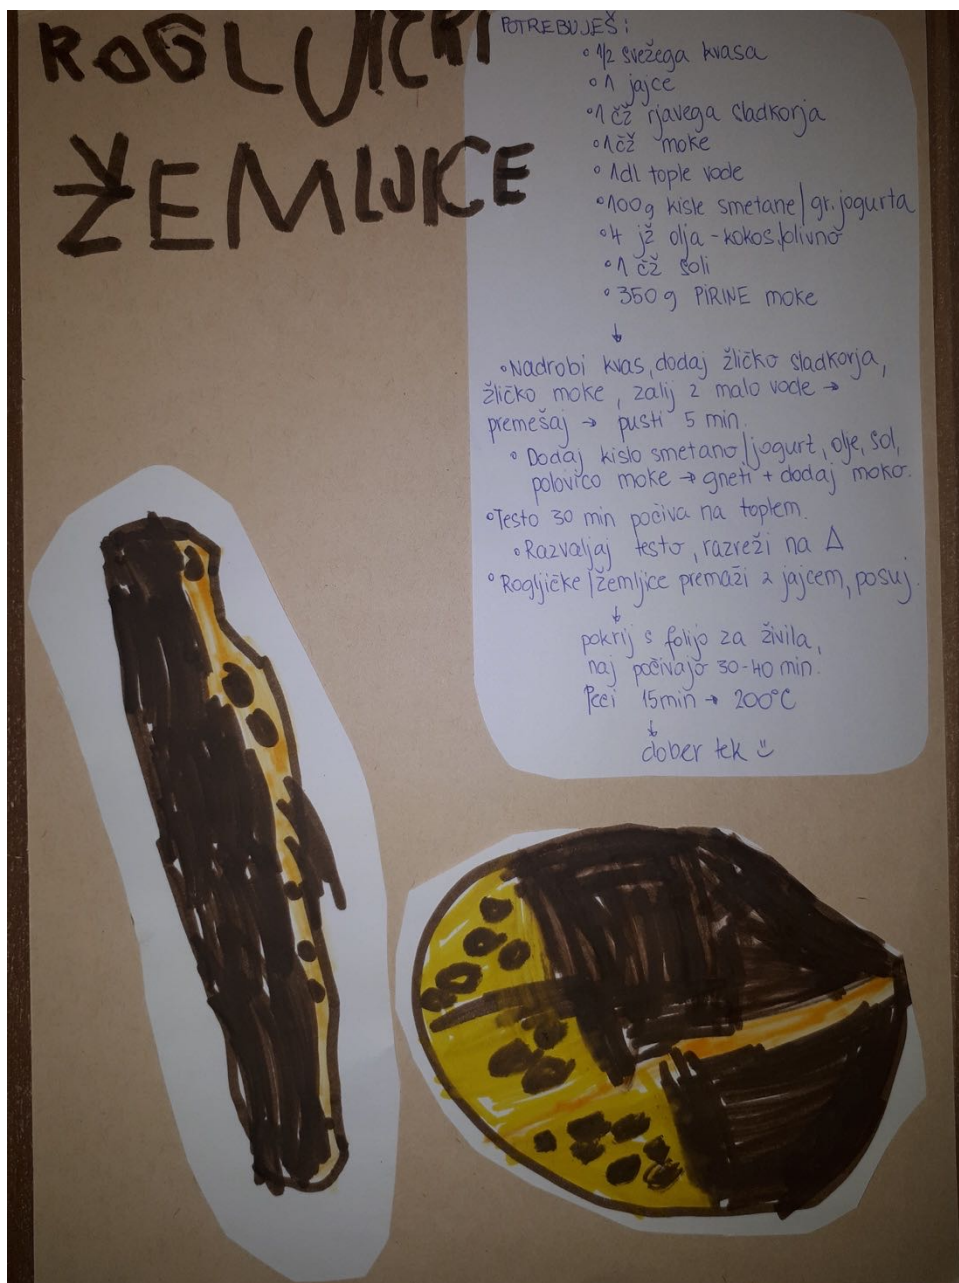 ROGLJIČKI
ŽEMLJICE
POTREBUJEŠ:
• 1/2 svežega kvasa
• 1 jajce
• 1 čž rjavega sladkorja
• 1 čž moke
• 1dl tople vode
• 100g kisle smetane/gr. jogurta
• 4 jž olja - kokos./olivno
• 1 čž soli
• 350 g PIRINE moke
↓
• Nadrobi kvas, dodaj žličko sladkorja,
žličko moke, zalij z malo vode →
premešaj → pusti 5 min.
• Dodaj kislo smetano/jogurt, olje, sol,
polovico moke → gneti + dodaj moko.
• Testo 30 min počiva na toplem.
• Razvaljaj testo, razreži na Δ
• Rogljičke/žemljice premaži z jajcem, posuj.
↓
pokrij s folijo za živila,
naj počivajo 30-40 min.
Peci 15min → 200°C
↓
dober tek :)